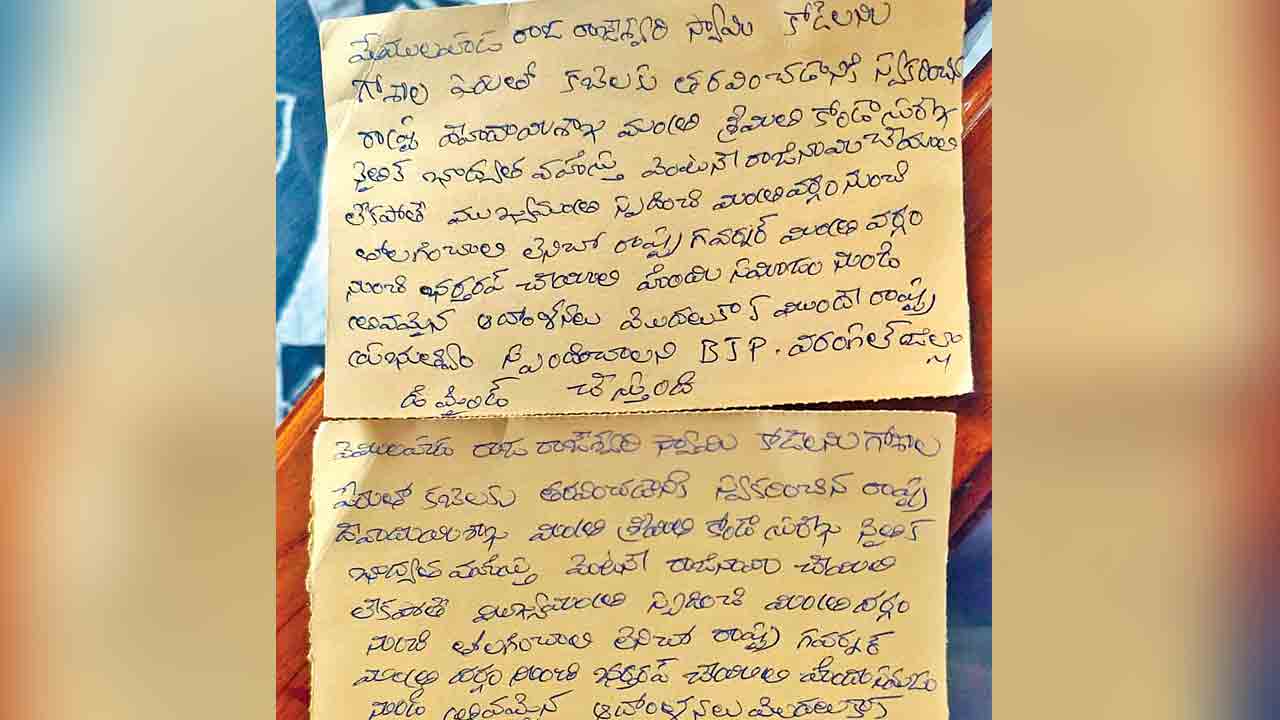 వేములవాడ రాజ రాజేశ్వరి స్వామి కోడెలని
గోశాల పేరుతో కబేలకు తరలించడానికి స్వీకరించిన
రాష్ట్ర దేవాదాయశాఖ మంత్రి శ్రీమతి కోండా సురేఖ
నైతిక భాద్యత వహిస్తు వెంటనే రాజీనామా చేయాలి
లేకపోతే ముఖ్యమంత్రి స్పదించి మంత్రి వర్గం నుంచి
తోలగించాలి లేనిచో రాష్ట్ర గవర్నర్ మంత్రి వర్గం
నుంచి భర్తరప్ చేయాలి హిందు సమాజం నుండి
తీవ్రమైన ఆందోళనలు మొదలుకాక ముందే రాష్ట్ర
ప్రభుత్వం స్పందించాలని BJP. వరంగల్ జిల్లా
డిమాండ్ చేస్తుంది
వేములవాడ రాజ రాజేశ్వరి స్వామి కోడెలను గోశాల
పేరుతో కబెలకు తరలించడానికి స్వీకరించిన రాష్ట్ర
దేవాదాయశాఖ మంత్రి శ్రీమతి కోండా సురేఖ నైతిక
భాద్యత వహిస్తు వెంటనే రాజీనామా చేయాలి
లేకపోతే ముఖ్యమంత్రి స్పదించి మంత్రి వర్గం
నుంచి తోలగించాలి లేనిచో రాష్ట్ర గవర్నర్
మంత్రి వర్గం నుంచి భర్తరప్ చేయాలి హిందు సమాజం
నుండి తీవ్రమైన ఆందోళనలు మొదలుకాక